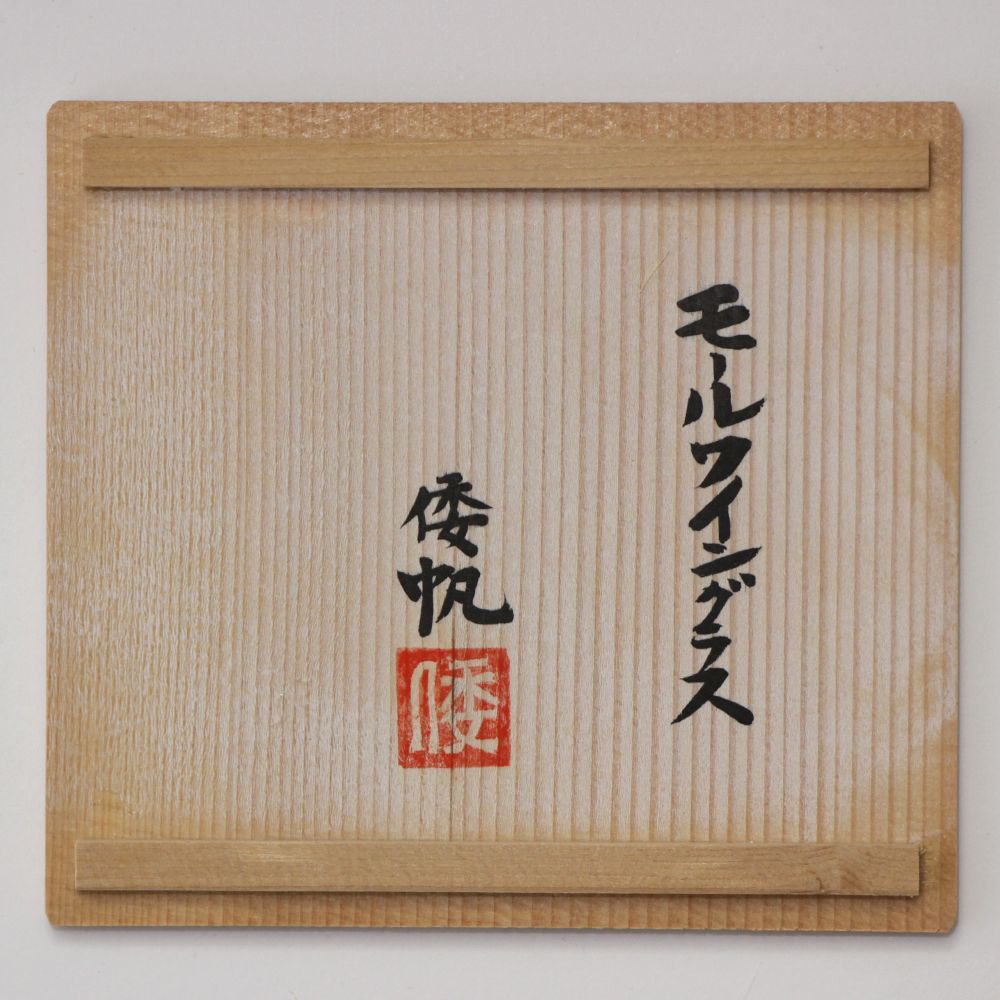 モールワイングラス
倭帆
倭